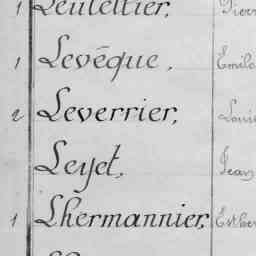 1 Leutellier, Pierr
1 Levêque, Emile
2 Leverrier, Louis
Leyet, Jean
1 Lhermannier, Esther